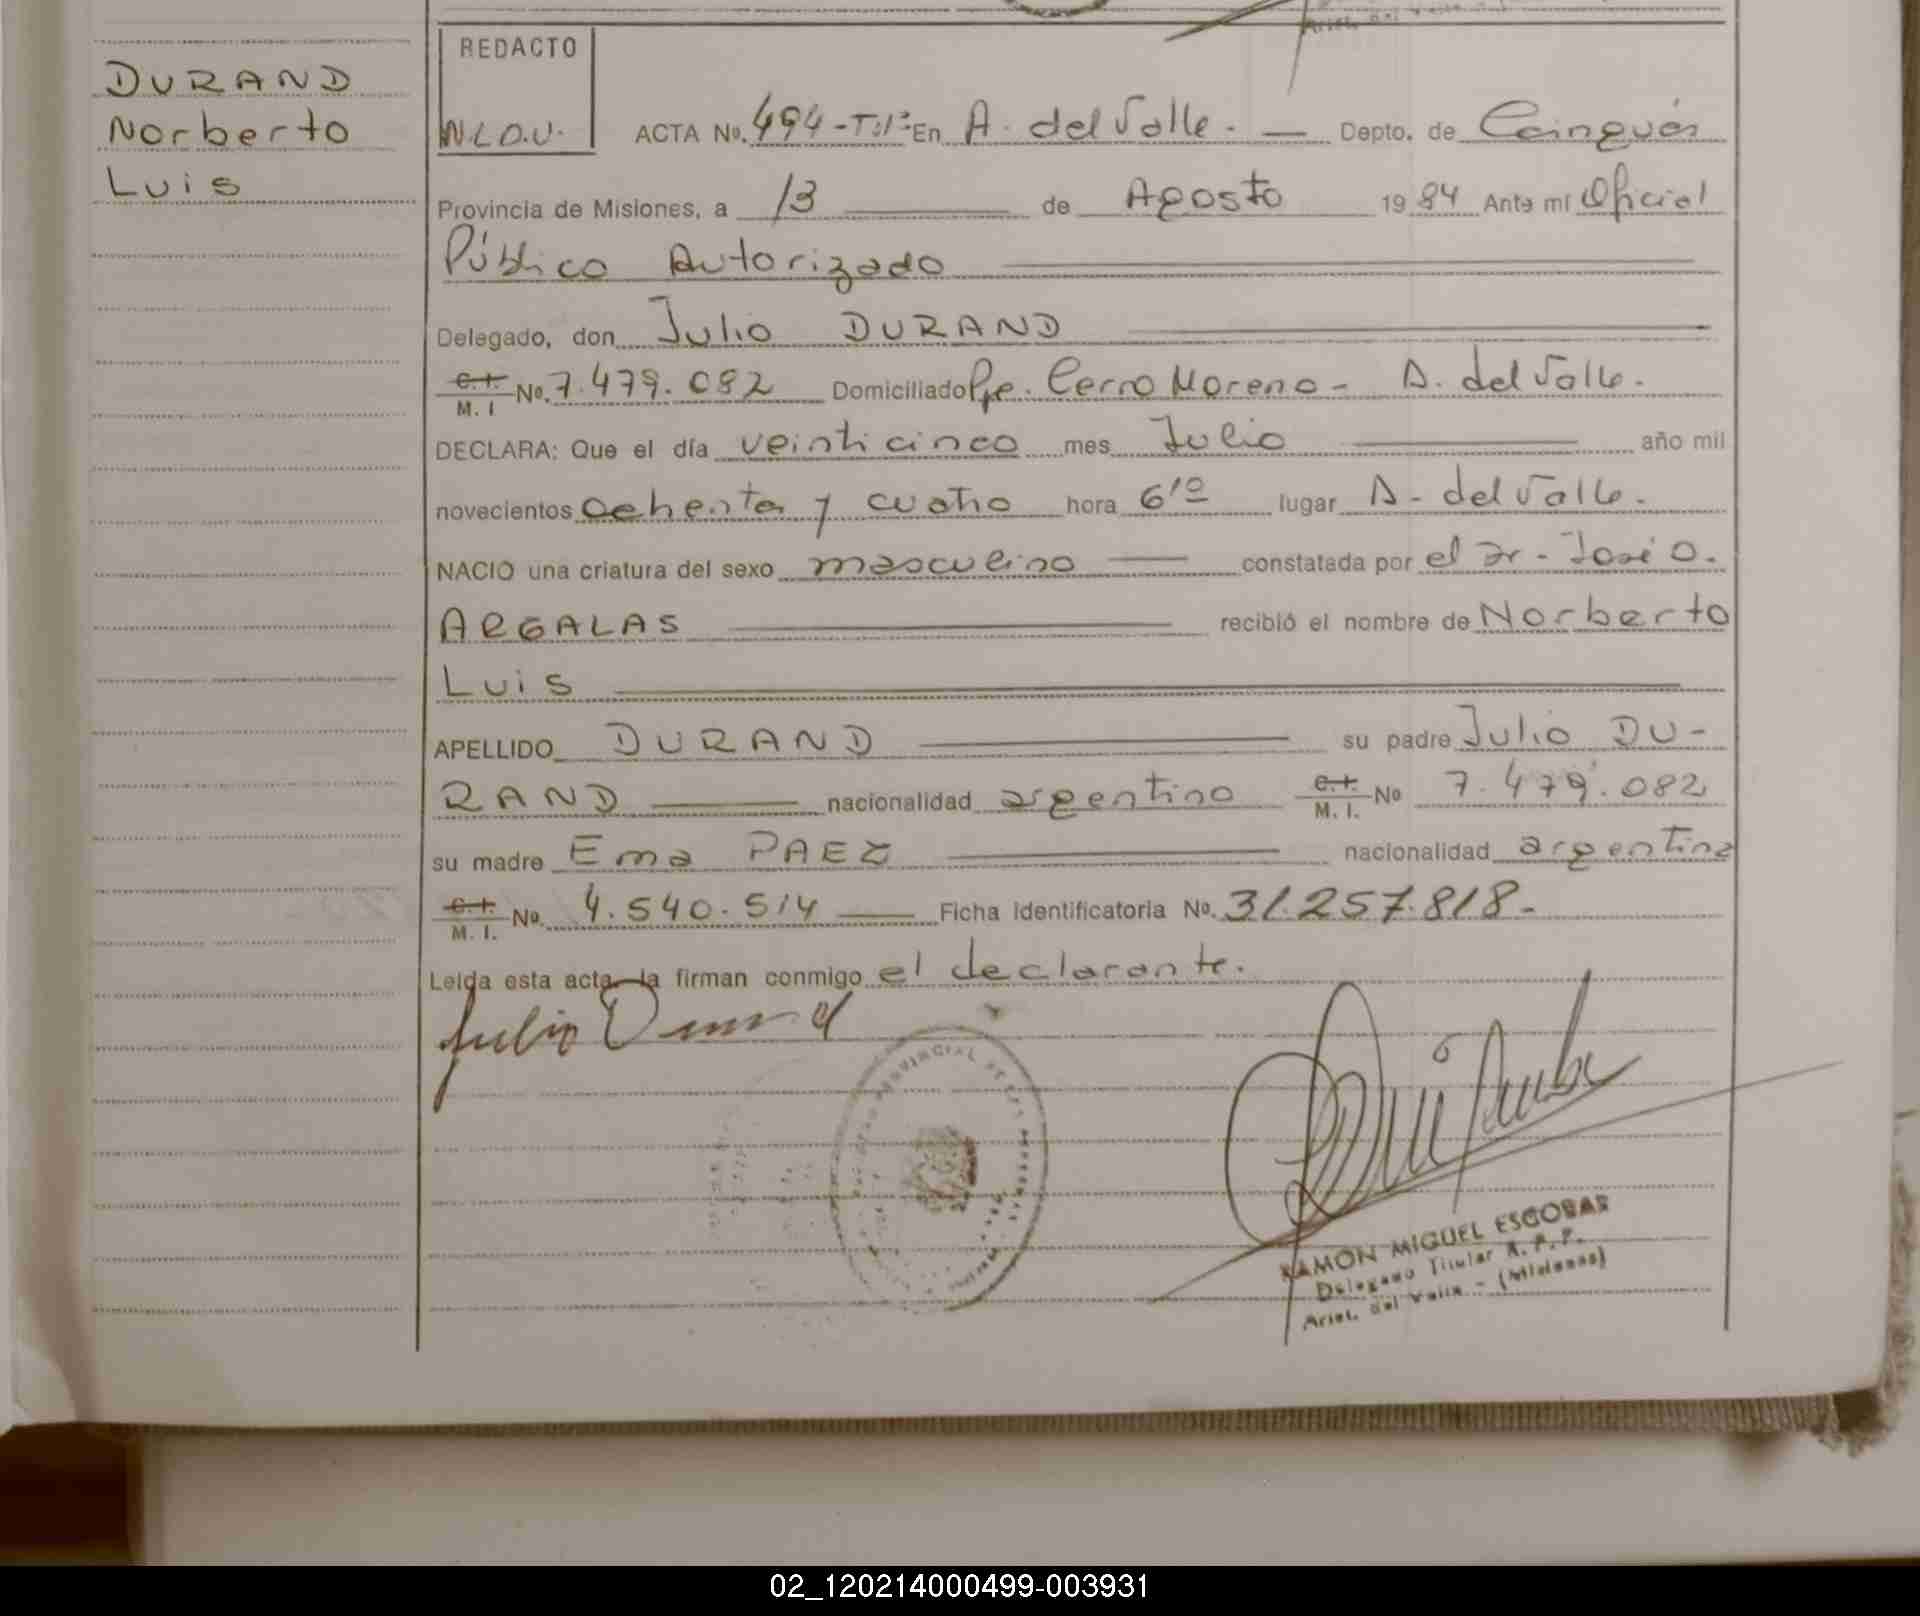 DURAND
Norberto
Luis
REDACTO
N.L.D.V.
ACTA No. 494-T:1º En A. del Valle. — Depto. de Cainguás
Provincia de Misiones, a 13 de Agosto 1984 Ante mí Oficial
Público Autorizado
Delegado, don Julio DURAND
C.I. M. I No. 7.479.082 Domiciliado Pje. Cerro Moreno - A. del Valle.
DECLARA: Que el día veinticinco mes Julio año mil
novecientos ochenta y cuatro hora 6'º lugar A. del Valle.
NACIO una criatura del sexo masculino constatada por el Dr. José O.
ARGALAS recibió el nombre de Norberto
Luis
APELLIDO DURAND su padre Julio DU-
RAND nacionalidad argentino C.I. M. I. No 7.479.082
su madre Ema PAEZ nacionalidad argentina
C.I. M. I. No. 4.540.514 Ficha Identificatoria No. 31.257.818.-
Leída esta acta, la firman conmigo el declarante.
Julio Durand
RAMON MIGUEL ESCOBAR
Delegado Titular R. P. P.
Arist. del Valle - (Misiones)
02_120214000499-003931